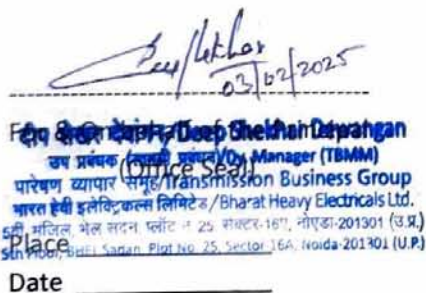 Deep Shekhar
03/02/2025
दीप शेखर देवांगन/Deep Shekhar Dewangan
उप प्रबंधक /Dy. Manager (TBMM)
(Office Seal)
पारेषण व्यापार समूह/Transmission Business Group
भारत हेवी इलेक्ट्रिकल्स लिमिटेड/Bharat Heavy Electricals Ltd.
मंजिल, भेल सदन, प्लॉट नं 25 सेक्टर-16ए, नोएडा-201301 (उ.प्र.)
Place
5th Floor, BHEL Sadan, Plot No. 25, Sector 16A, Noida-201301 (U.P.)
Date